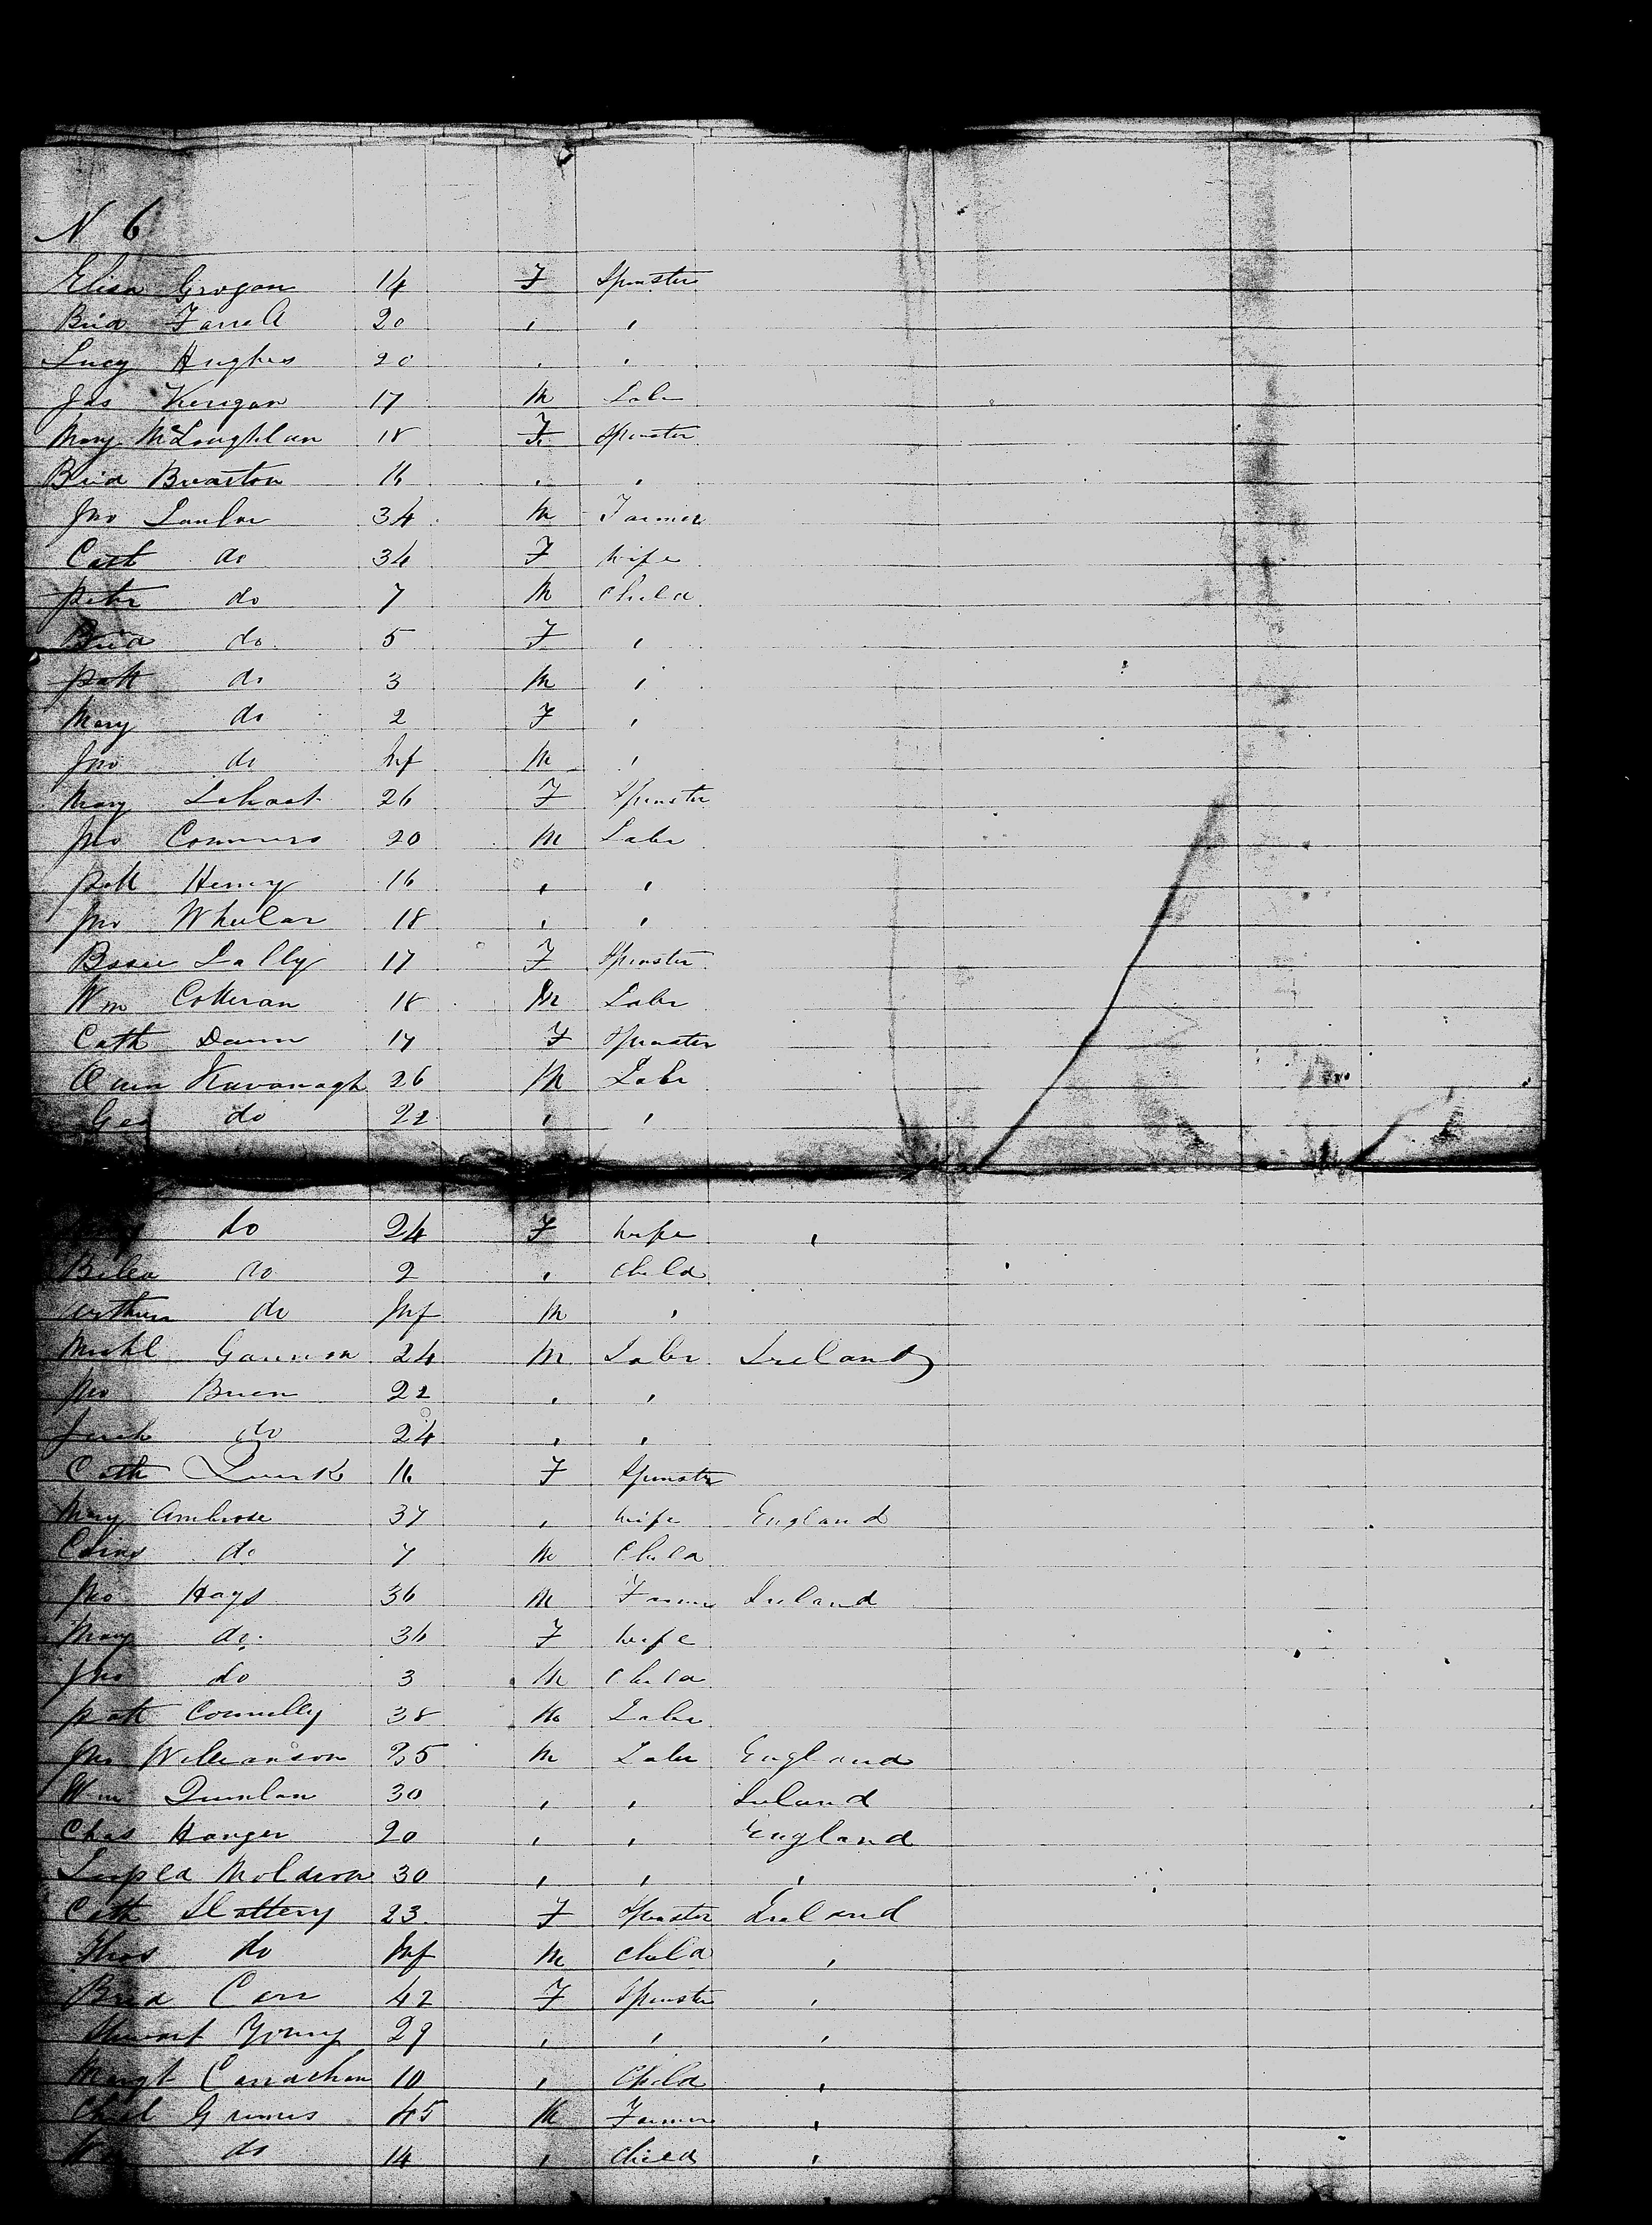 N 6
Elisa Grogan 14 F Spinster
Brid Farrell 20 , ,
Lucy Hughes 20 , ,
Jas Kerigan 17 M Labr
Mary McLoughlan 18 F Spinster
Brid 16 , ,
Jno Lawlor 34 M Farmer
Cath do 34 F Wife
Peter do 7 M Child
Brid do 5 F ,
Patt do 3 M ,
Mary do 2 F ,
Jno do Inf M ,
Mary 26 F Spinster
Jno Connors 20 M Labr
Patt Henry 16 , ,
Jno Whelan 18 , ,
Bssie Lally 17 F Spinster
Wm Cotteran 18 M Labr
Cath Dunn 17 F Spinster
Kavanagh 26 M Labr
Geo do 22 , ,
do 24 F Wife ,
do 2 , Child
Arthur do Inf M ,
Michl Gannon 24 M Labr Ireland
Jno Brien 22 , ,
do 24 , ,
Cath Quirk 16 F Spinster
Mary Ambrose 37 , Wife England
do 7 M Child
Jno Hays 36 M Farmer Ireland
Mary do 36 F Wife
Jno do 3 M Child
Patt Connelly 38 M Labr
Jno Wilkinson 25 M Labr England
Wm Quinlan 30 , , Ireland
Chas Hanger 20 , , England
30 , , ,
Cath Slattery 23 F Spinster Ireland
Thos do Inf M Child ,
Brid Carr 42 F Spinster ,
Young 29 , , ,
Margt Carrachan 10 , Child ,
Grimes 45 M Farmer ,
Wm do 14 , Child ,